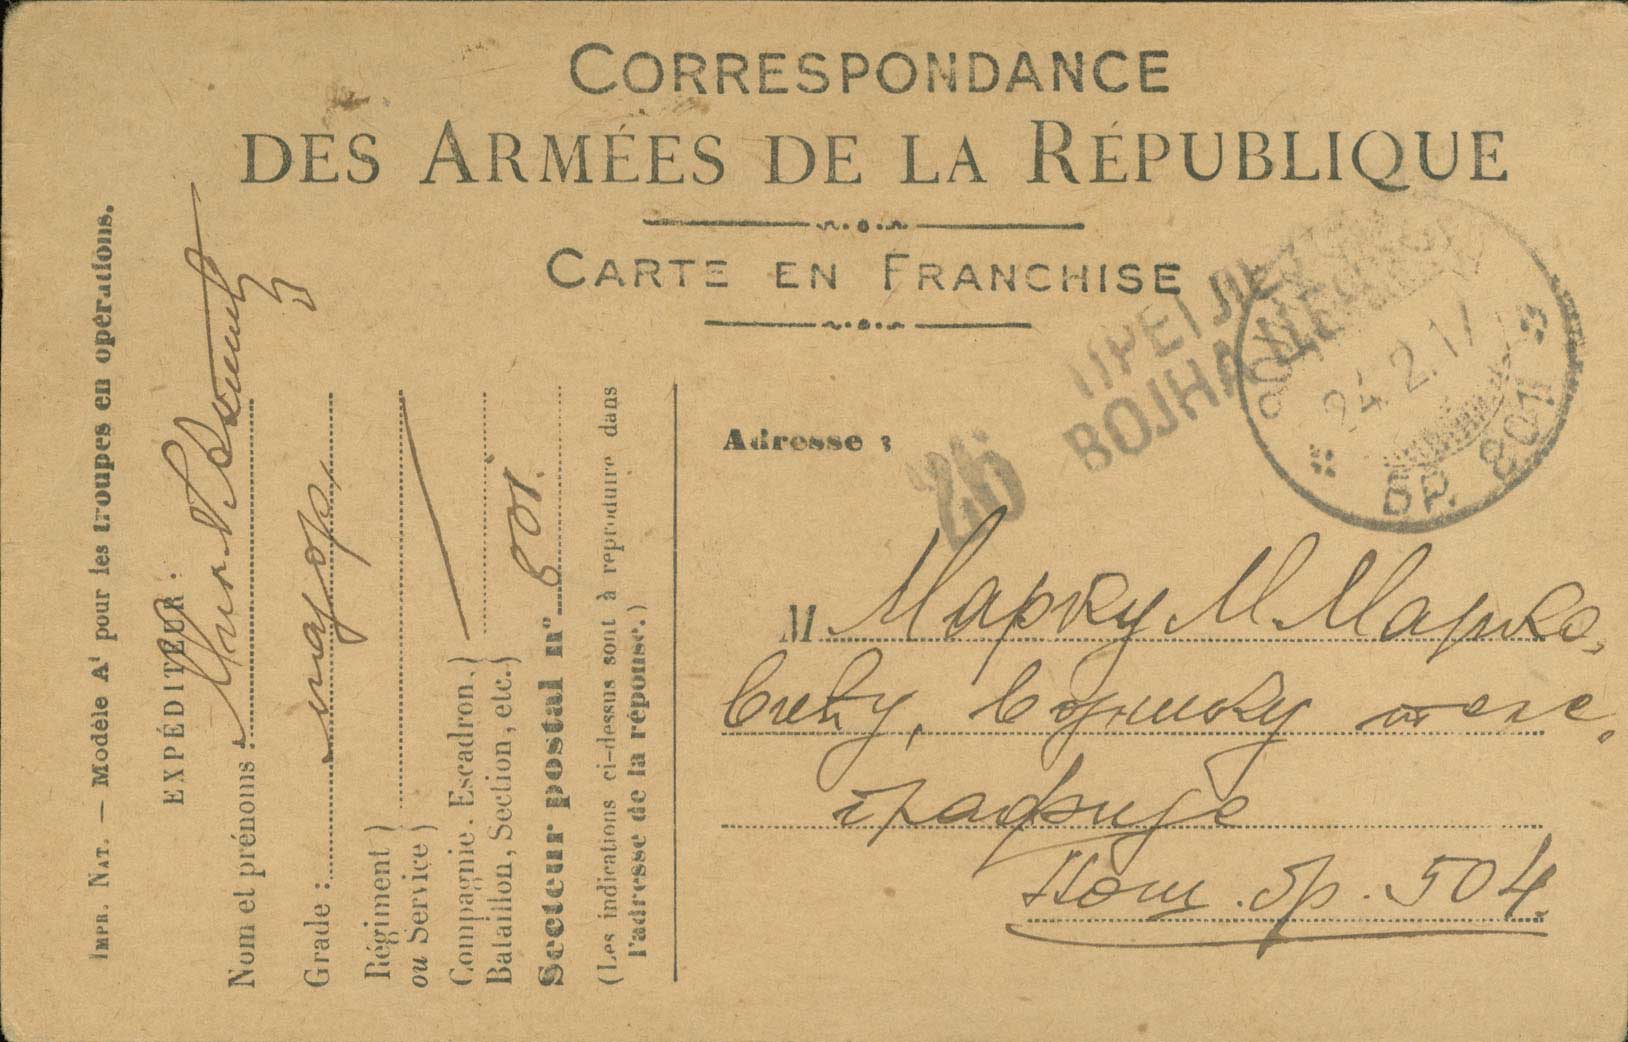 CORRESPONDANCE
DES ARMÉES DE LA RÉPUBLIQUE
CARTE EN FRANCHISE
IMPR. NAT. — Modèle A¹ pour les troupes en opérations.
EXPÉDITEUR :
Nom et prénoms :
Grade : мајор
Régiment
ou Service
Compagnie, Escadron,
Bataillon, Section, etc.
Secteur postal n° 801.
(Les indications ci-dessus sont à reproduire dans
l'adresse de la réponse.)
ВОЈНА
24.2.17
БР. 801
26
Adresse :
M Марку М. Марко-
вићу, војнику теле-
графије
Пош. бр. 504.